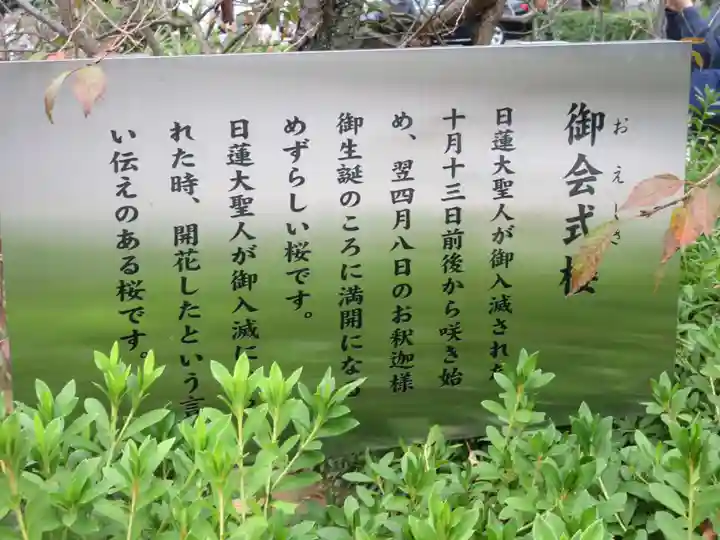 御会式桜
おえしき
日蓮大聖人が御入滅された
十月十三日前後から咲き始
め、翌四月八日のお釈迦様
御生誕のころに満開になる
めずらしい桜です。
日蓮大聖人が御入滅に
れた時、開花したという言
い伝えのある桜です。